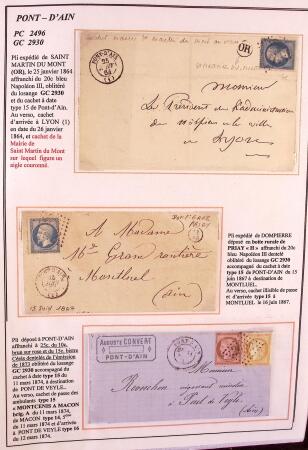 PONT – D'AIN
PC 2496
GC 2930
Pli expédié de SAINT
MARTIN DU MONT
(OR), le 25 janvier 1864
affranchi du 20c bleu
Napoléon III, oblitéré
du losange GC 2930
et du cachet à date
type 15 de Pont-d'Ain.
Au verso, cachet
d'arrivée à LYON (1)
en date du 26 janvier
1864, et cachet de la
Mairie de
Saint Martin du Mont
sur lequel figure un
aigle couronné.
PONT-D'AIN
25
64
(1)
OR
Monsieur
Le Président de l'administration
des hospices de la ville
de Lyon
DOMPIERRE
PRIAY
A Madame
Montluel
(Ain)
15 Juin 1867
Pli expédié de DOMPIERRE
déposé en boîte rurale de
PRIAY « H » affranchi du 20c
bleu Napoléon III dentelé
oblitéré du losange GC 2930
accompagné du cachet à date
type 15 de PONT-D'AIN du 15
juin 1867 à destination de
MONTLUEL.
Au verso, cachet illisible de passe
et d'arrivée type 15 à
MONTLUEL le 16 juin 1867.
Pli déposé à PONT-D'AIN
affranchi à 25c. du 10c.
brun sur rose et du 15c. bistre
Cérès dentelés de l'émission
de 1873 oblitéré du losange
GC 2930 accompagné du
cachet à date type 16 du
11 mars 1874, à destination
de PONT DE VEYLE.
Au verso, cachet de passe des
ambulants type 15
« MONTCENIS A MACON
brig. A du 11 mars 1874,
de MACON type 16, 5ème
du 11 mars 1874 et d'arrivée
à PONT DE VEYLE type 16
du 12 mars 1874.
AUGUSTE CONVERT
PONT-D'AIN
Monsieur
Pont de Veyle
(Ain)